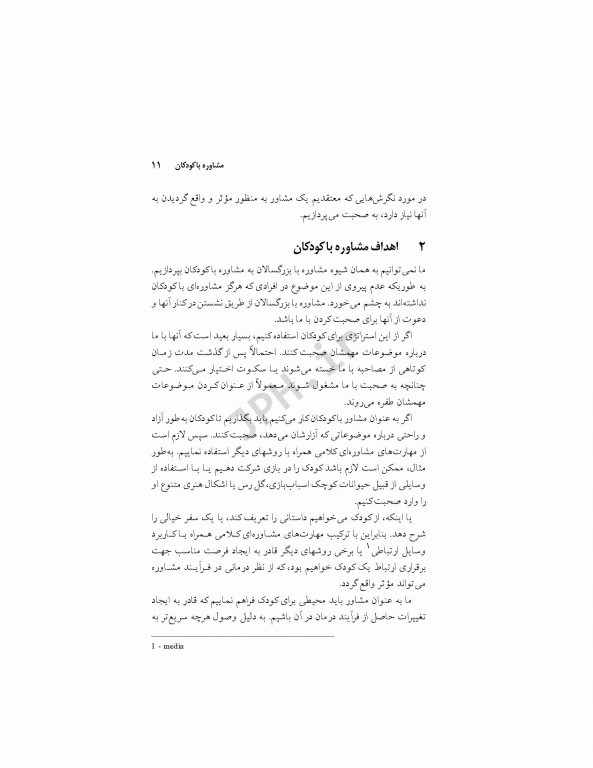 مشاوره با کودکان ۱۱
در مورد نگرش‌هایی که معتقدیم یک مشاور به منظور مؤثر و واقع گردیدن به
آنها نیاز دارد، به صحبت می‌پردازیم.
۲ اهداف مشاوره با کودکان
ما نمی‌توانیم به همان شیوه مشاوره با بزرگسالان به مشاوره با کودکان بپردازیم.
به طوریکه عدم پیروی از این موضوع در افرادی که هرگز مشاوره‌ای با کودکان
نداشته‌اند به چشم می‌خورد. مشاوره با بزرگسالان از طریق نشستن در کنار آنها و
دعوت از آنها برای صحبت کردن با ما باشد.
اگر از این استراتژی برای کودکان استفاده کنیم، بسیار بعید است که آنها با ما
درباره موضوعات مهمشان صحبت کنند. احتمالاً پس از گذشت مدت زمان
کوتاهی از مصاحبه با ما خسته می‌شوند یا سکوت اختیار می‌کنند. حتی
چنانچه به صحبت با ما مشغول شوند معمولاً از عنوان کردن موضوعات
مهمشان طفره می‌روند.
اگر به عنوان مشاور با کودکان کار می‌کنیم باید بگذاریم تا کودکان به‌طور آزاد
و راحتی درباره موضوعاتی که آزارشان می‌دهد، صحبت کنند. سپس لازم است
از مهارت‌های مشاوره‌ای کلامی همراه با روشهای دیگر استفاده نماییم. به‌طور
مثال، ممکن است لازم باشد کودک را در بازی شرکت دهیم یا با استفاده از
وسایلی از قبیل حیوانات کوچک اسباب‌بازی، گل رس یا اشکال هنری متنوع او
را وارد صحبت کنیم.
یا اینکه، از کودک می‌خواهیم داستانی را تعریف کند، یا یک سفر خیالی را
شرح دهد. بنابراین با ترکیب مهارت‌های مشاوره‌ای کلامی همراه با کاربرد
وسایل ارتباطی۱ یا برخی روشهای دیگر قادر به ایجاد فرصت مناسب جهت
برقراری ارتباط یک کودک خواهیم بود، که از نظر درمانی در فرآیند مشاوره
می‌تواند مؤثر واقع گردد.
ما به عنوان مشاور باید محیطی برای کودک فراهم نماییم که قادر به ایجاد
تغییرات حاصل از فرآیند درمان در آن باشیم. به دلیل وصول هرچه سریع‌تر به
1 - media
JPH.ir